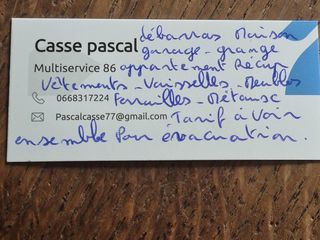 débarras Maison
Casse pascal garage - grange
Multiservice 86 appartement Récup
Vêtements - Vaisselles - Meubles
0668317224 Ferrailles - Métaux
Pascalcasse77@gmail.com Tarif à voir
ensemble pour évacuation.